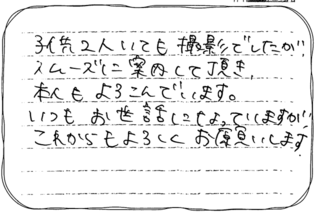 子供2人いても撮影でしたが、
スムーズに案内して頂き、
本人もよろこんでいます。
いつもお世話になっていますが
これからもよろしくお願いします